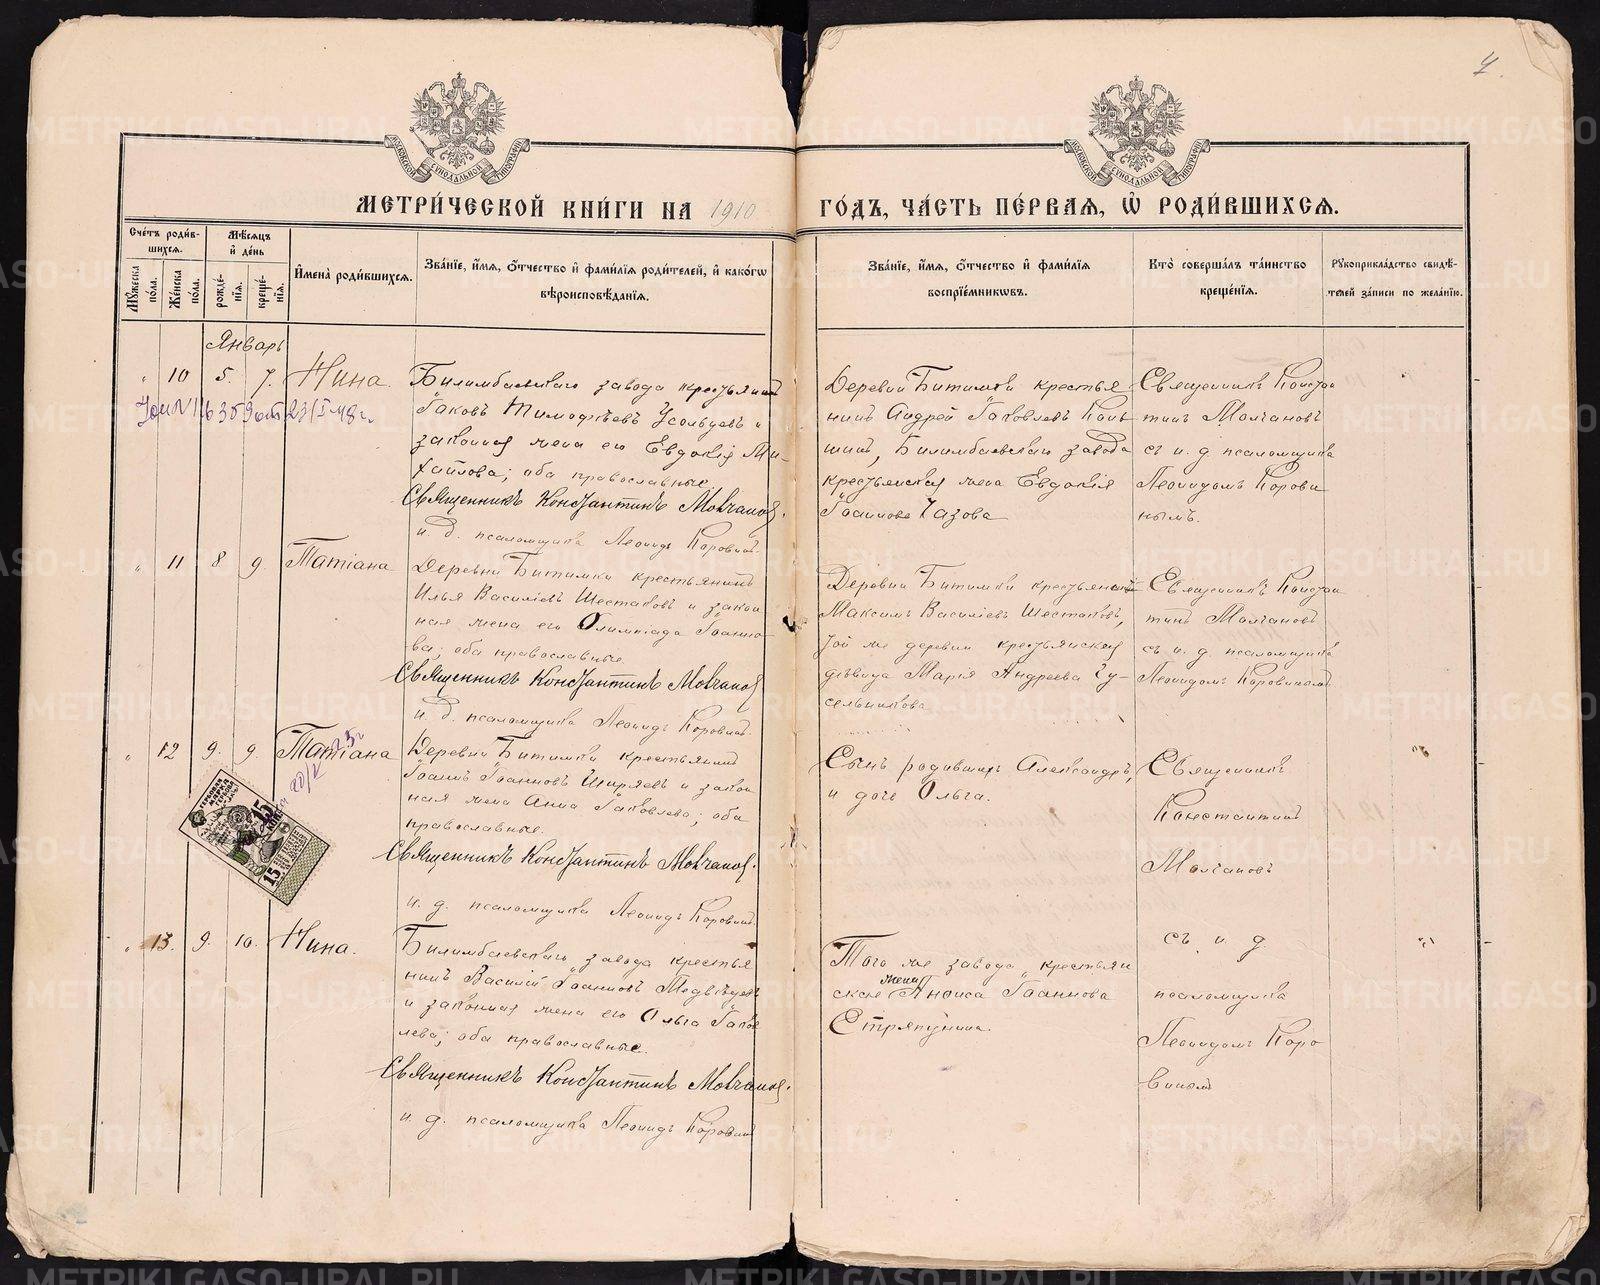 4.
МОСКОВСКОЙ СѴНОДАЛЬНОЙ ТИПОГРАФІИ
МОСКОВСКОЙ СѴНОДАЛЬНОЙ ТИПОГРАФІИ
МЕТРИ́ЧЕСКОЙ КНИ́ГИ НА 1910
ГО́ДЪ, ЧА́СТЬ ПЕ́РВАЯ, Ѡ҆ РОДИ́ВШИХСЯ.
Сче́тъ роди́в-
шихся.
Мѣ́сяцъ
и҆ де́нь
Мꙋ́жеска по́ла.
Же́нска по́ла.
рожде́-
нїя.
креще́-
нїя.
И҆мена̀ роди́вшихся.
Зва́нїе, и҆́мя, ѻ҆́тчество и҆ фами́лїя роди́телей, и҆ како́гѡ
вѣроисповѣ́данїя.
Зва́нїе, и҆́мя, ѻ҆́тчество и҆ фами́лїя
воспрїе́мникѡвъ.
Кто̀ соверша́лъ та́инство
креще́нїя.
Рꙋкоприкла́дство свидѣ́-
телей за́писи по жела́нїю.
Январь
„ 10 5. 7. Нина
Билимбаевскаго завода крестьянинъ
Іаковъ Тимоѳѣевъ Усольцевъ и
законная жена его Евдокія Ми-
хайлова; оба православные.
Священникъ Константинъ Молчановъ.
и. д. псаломщика Леонидъ Коровинъ.
Деревни Битимки крестья
нинъ Андрей Іаковлевъ
Билимбаевскаго завода
крестьянская жена Евдокія
Іоаннова Чазова
Священникъ Констан
тинъ Молчановъ
съ и. д. псаломщика
Леонидомъ Корови
нымъ.
„ 11 8 9. Татіана
Деревни Битимки крестьянинъ
Илья Василіевъ Шестаковъ и закон
ная жена его Олимпіада Іоанно-
ва; оба православные.
Священникъ Константинъ Молчановъ
и. д. псаломщика Леонидъ Коровинъ.
Деревни Битимки крестьянинъ
Максимъ Василіевъ Шестаковъ,
той же деревни крестьянская
дѣвица Марія Андреева Гу-
сельникова
Священникъ Констан
тинъ Молчановъ
съ и. д. псаломщика
Леонидомъ Коровинымъ
„ 12 9. 9. Татіана
Деревни Битимки крестьянинъ
Іоаннъ Іоанновъ Ширяевъ и закон
ная жена Анна Іаковлева; оба
православные.
Священникъ Константинъ Молчановъ.
и. д. псаломщика Леонидъ Коровинъ.
Сынъ родившихъ Александръ,
и дочь Ольга.
Священникъ
Константинъ
Молчановъ
съ и. д.
псаломщика
Леонидомъ Коро
винымъ
15 КОП.
15
„ 13. 9. 10. Нина.
Билимбаевскаго завода крестья
нинъ Василій Іоанновъ Медвѣдевъ
и законная жена его Ольга Іаков
лева; оба православные.
Священникъ Константинъ Молчановъ.
и. д. псаломщика Леонидъ Коровинъ
Того же завода крестьян
ская жена Анѳиса Іоаннова
Стряпунина.
METRIKI.GASO-URAL.RU